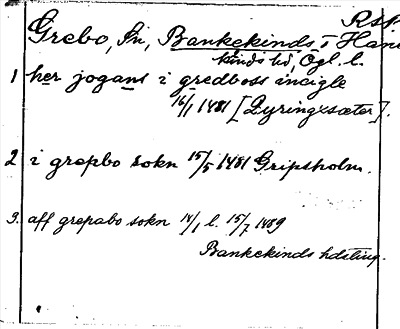 RSK
Grebo, Sn, Bankekinds, i Hane
kinds hd, Ögl. l.
1 her jogans i gredboss incigle
16/1 1481 [Lyringxsæter].
2 i grepbo sokn 15/5 1481 Gripsholm.
3. aff grepabo sokn 14/1 l. 15/7 1489
Bankekinds hdsting.